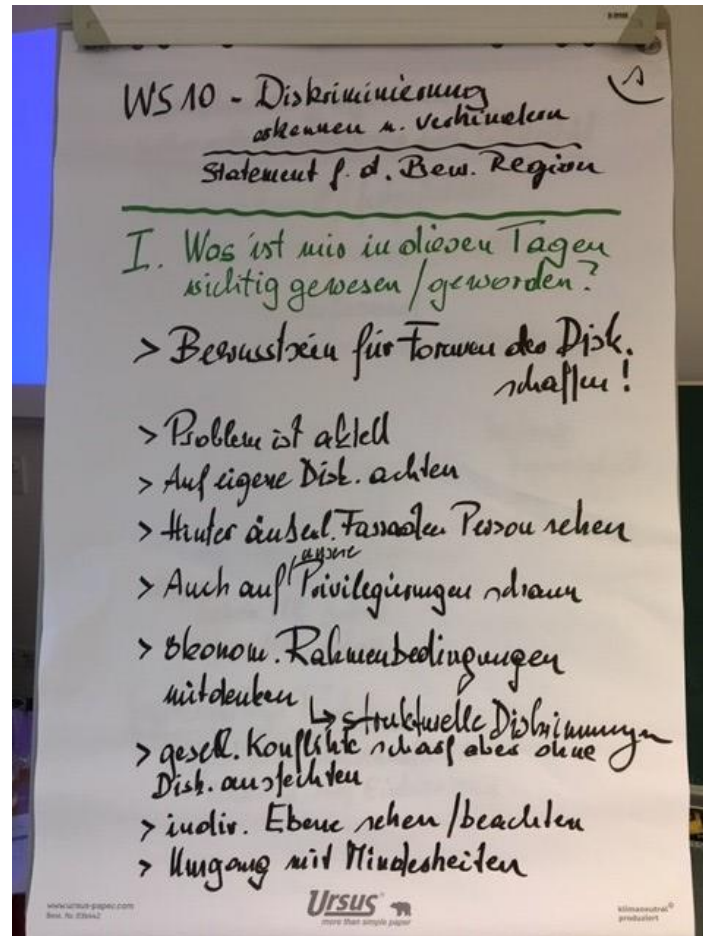 1
WS 10 - Diskriminierung
erkennen u. verhindern
Statement f. d. Bew. Region
I. Was ist mir in diesen Tagen
wichtig gewesen / geworden?
> Bewusstsein für Formen der Disk.
schaffen!
> Problem ist aktell
> Auf eigene Disk. achten
> Hinter äußerl. Fassaden Person sehen
unsere
> Auch auf Privilegierungen schauen
> ökonom. Rahmenbedingungen
mitdenken
↳ strukturelle Diskriminungen
> gesell. Konflikte scharf aber ohne
Disk. ausfechten
> indiv. Ebene sehen / beachten
> Umgang mit Minderheiten
www.ursus-paper.com
Best. Nr.
Ursus
more than simple paper
klimaneutral
produziert